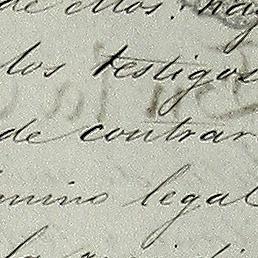 de ellos. hay
los testigos
de contrar
mino legal